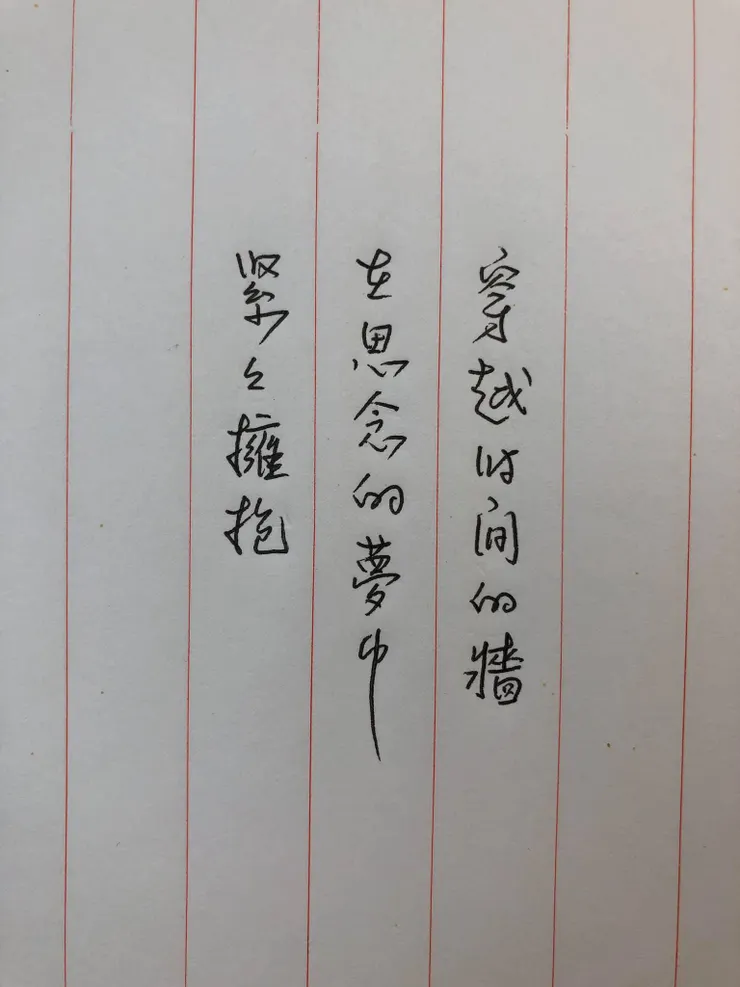 穿越时间的牆
在思念的夢中
紧々擁抱